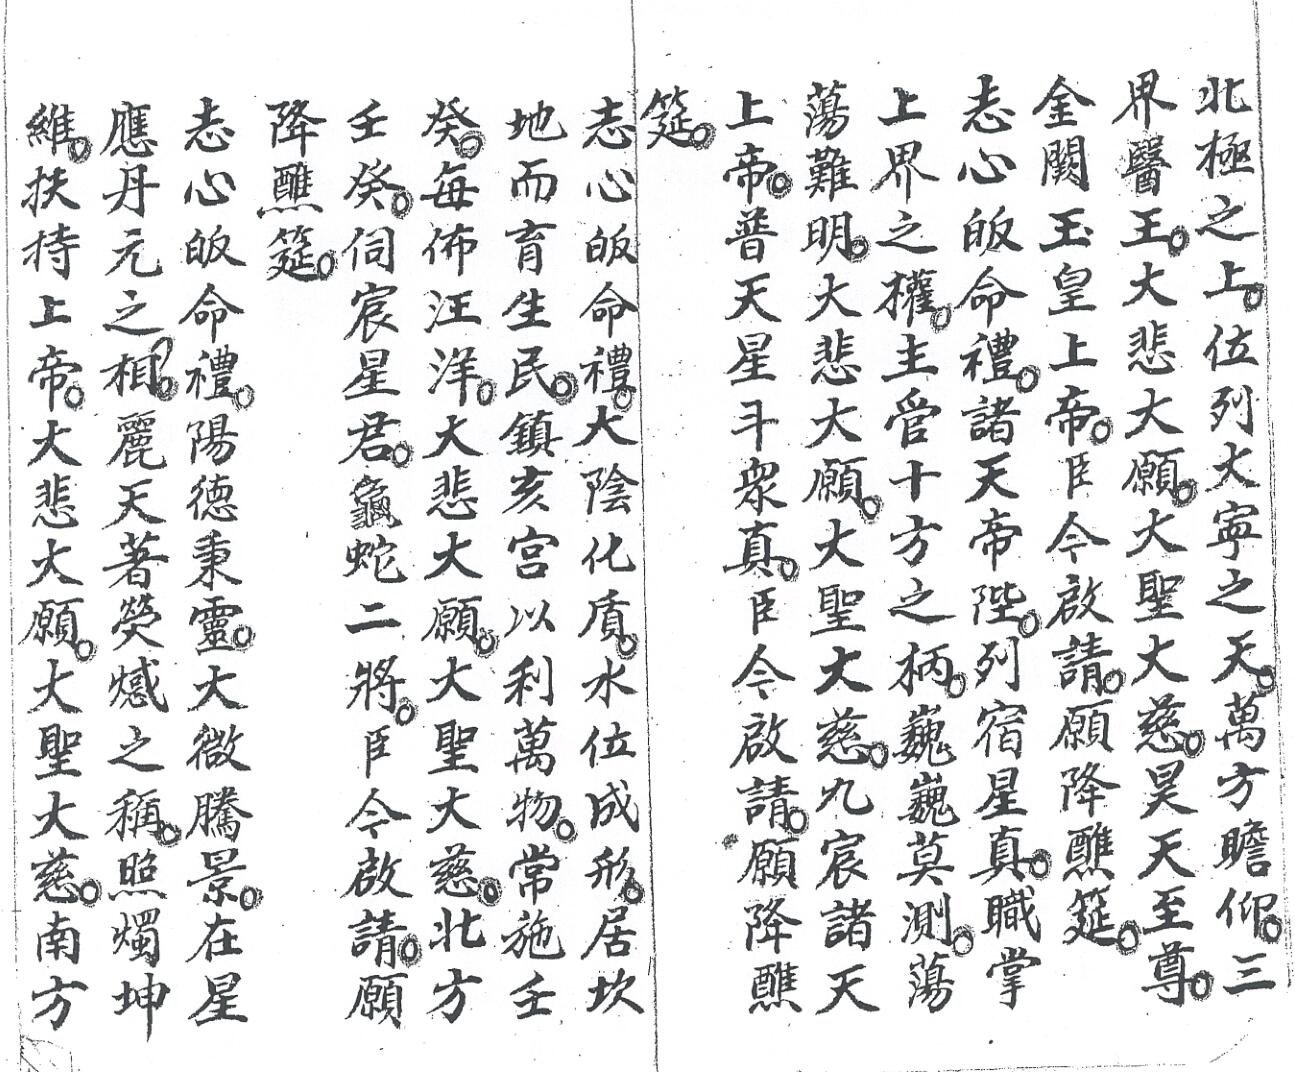 北極之上。位列大寧之天。萬方瞻仰。三
界醫王。大悲大願。大聖大慈。昊天至尊。
金闕玉皇上帝。臣今啟請。願降醮筵。
志心皈命禮。諸天帝陛。列宿星真。職掌
上界之權。主管十方之柄。巍巍莫測。蕩
蕩難明。大悲大願。大聖大慈。九宸諸天
上帝。普天星斗衆真。臣今啟請。願降醮
筵。
志心皈命禮。大陰化质。水位成形。居坎
地而育生民。鎮亥宮以利萬物。常施壬
癸。每佈汪洋。大悲大願。大聖大慈。北方
壬癸。伺宸星君。龜蛇二將。臣今啟請。願
降醮筵。
志心皈命禮。陽德秉靈。大微騰景。在星
應丹元之相。麗天著熒惑之稱。照燭坤
維。扶持上帝。大悲大願。大聖大慈。南方